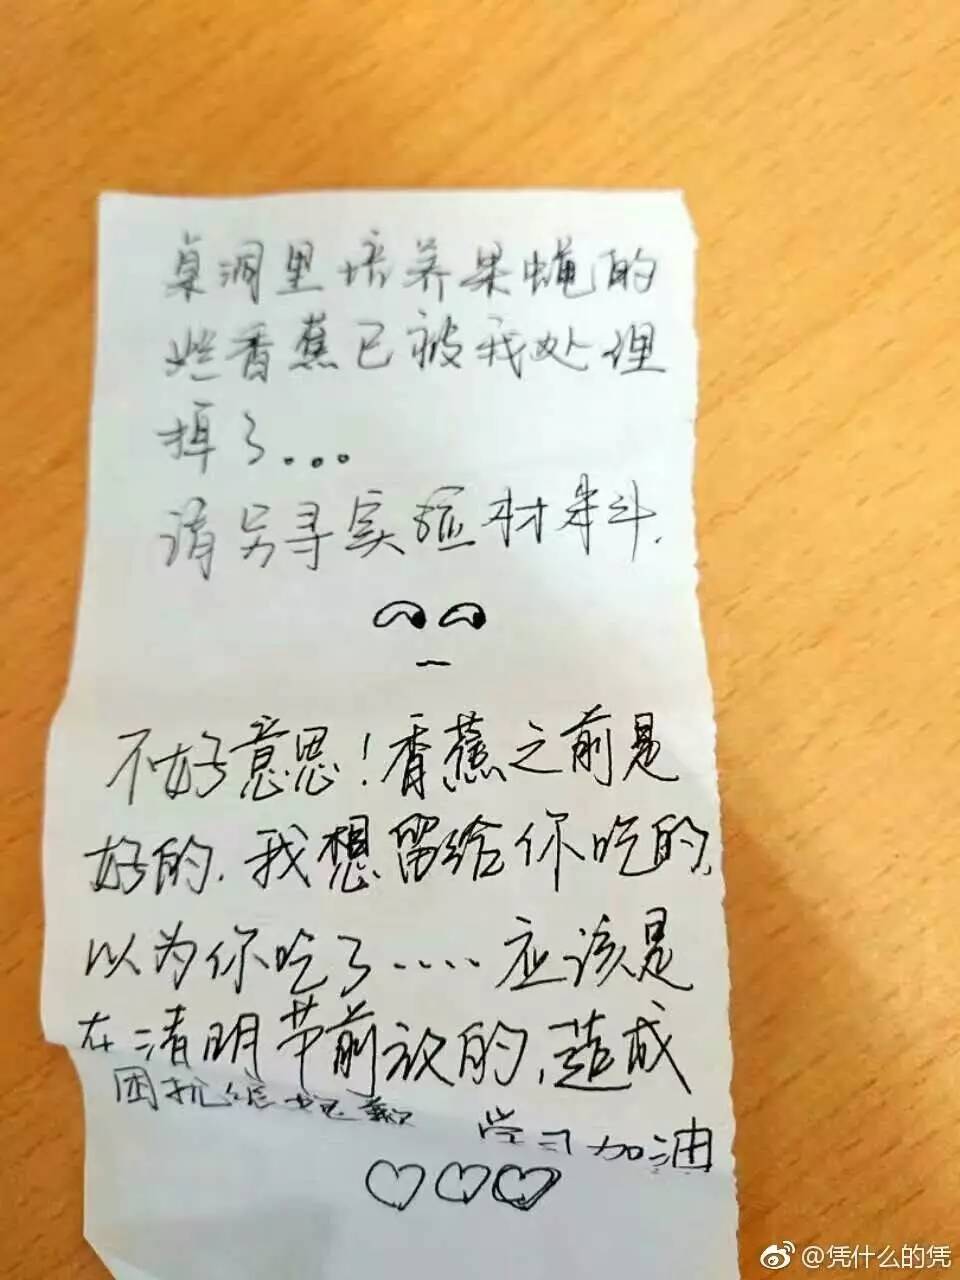 桌洞里培养果蝇的
烂香蕉已被我处理
掉了...
请另寻实验材料.
不好意思！香蕉之前是
好的.我想留给你吃的,
以为你吃了....应该是
在清明节前放的,造成
困扰 抱歉
学习加油
@凭什么的凭